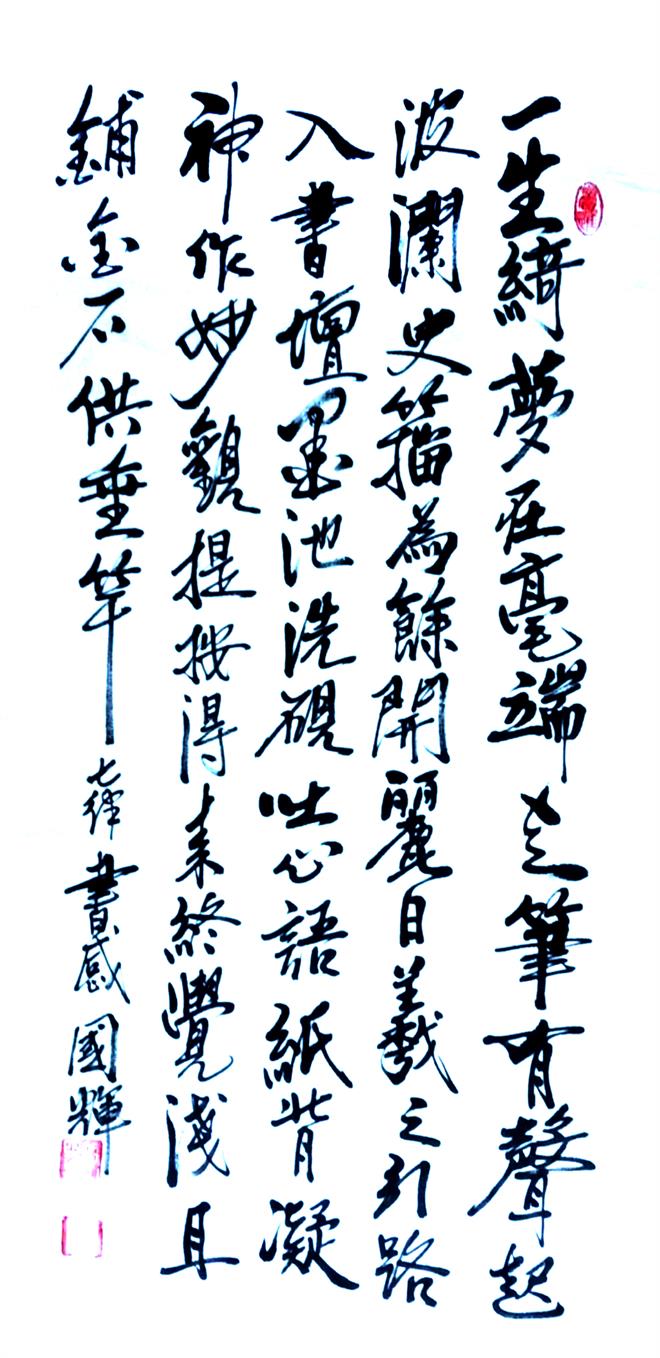 一生綺夢在毫端走筆有聲起
波瀾史籀為餘開麗日羲之引路
入書壇墨池洗硯吐心語紙背凝
神作妙觀提按得來終覺淺且
鋪金石供垂竿七律書感國輝